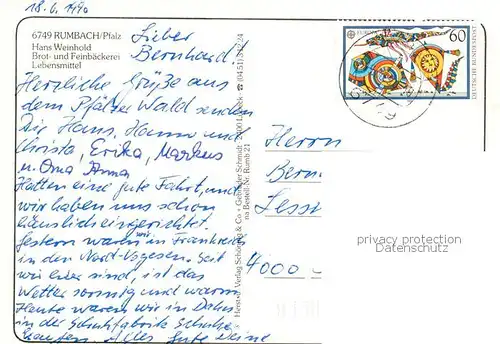 18.6.1990
6749 RUMBACH/Pfalz
Hans Weinhold
Brot- und Feinbäckerei
Lebensmittel
Lieber
Bernhard!
Herzliche Grüße aus
dem Pfälzer Wald senden
Dir Hans, Hanna und
Christa, Erika, Markus
u. Oma Anna
Hatten eine gute Fahrt, und
wir haben uns schon
häuslich eingerichtet.
Gestern waren wir in Frankreich
in den Nord-Vogesen. Seit
wir hier sind, ist das
Wetter sonnig und warm
Heute waren wir in Dahn
in der Schuhfabrik Schuhe
kaufen. Alles Gute Deine
Herst. u. Verlag Schöning & Co · Gebrüder Schmidt
Bestell-Nr. Rumb 21
EUROPA
60
DEUTSCHE BUNDESPOST
Herrn
Bern
Lessi
4000
privacy protection
DSGVO Datenschutz